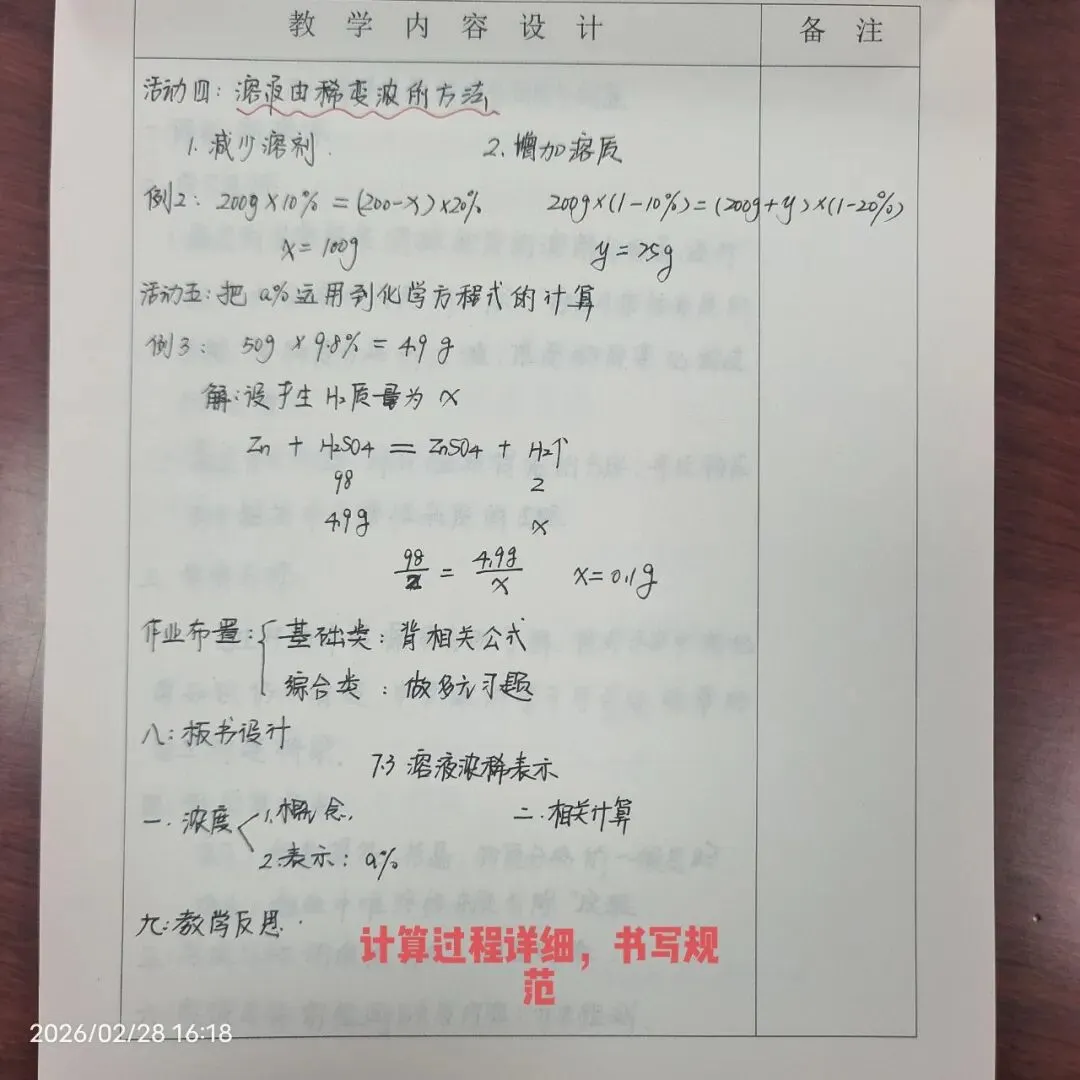 教学内容设计 备注
活动四：溶液由稀变浓的方法
1.减少溶剂. 2.增加溶质
例2：200g×10%=(200-x)×20% 200g×(1-10%)=(200g+y)×(1-20%)
x=100g y=25g
活动五：把a%运用到化学方程式的计算
例3：50g×9.8%=4.9g
解：设产生H₂质量为x
Zn + H₂SO₄ = ZnSO₄ + H₂↑
98 2
4.9g x
98/2 = 4.9g/x x=0.1g
作业布置：{基础类：背相关公式
综合类：做多元习题
八：板书设计
7.3 溶液浓稀表示
一.浓度<1.概念. 二.相关计算
2.表示：a%
九：教学反思.
计算过程详细，书写规
范
2026/02/28 16:18